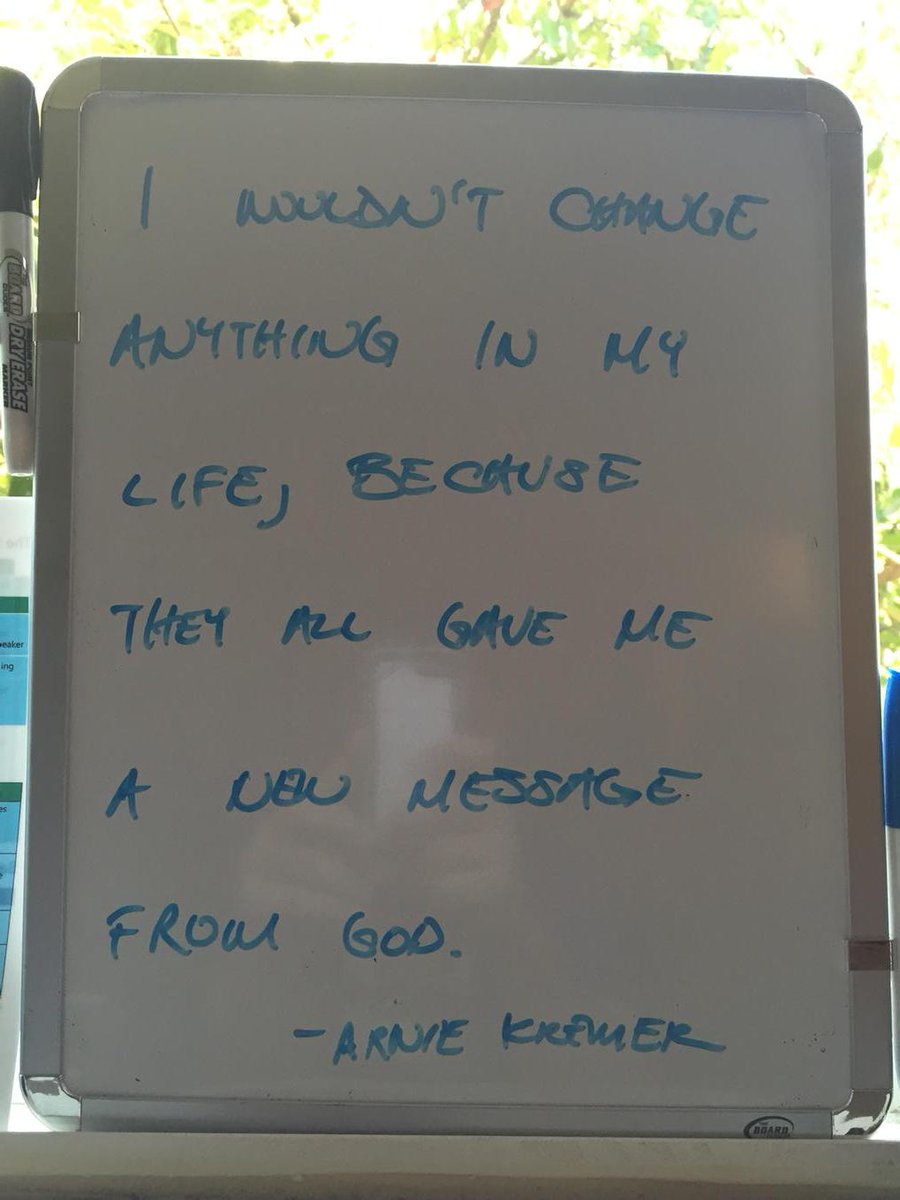 I WOULDN'T CHANGE
ANYTHING IN MY
LIFE, BECAUSE
THEY ALL GAVE ME
A NEW MESSAGE
FROM GOD.
- ARNIE KREMER
THE BOARD
BOARD DUDES
DRY ERASE
MARKER
eaker
ing
es